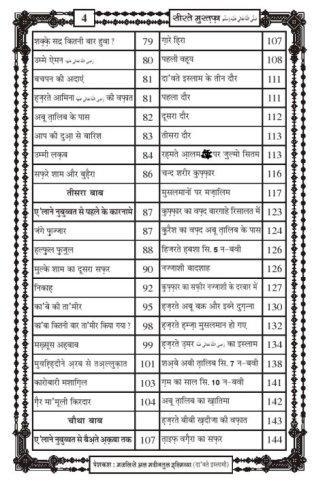 4
सीरते मुस्तफ़ा صلى الله عليه وسلم
शक़्क़े सद्र कितनी बार हुवा ? 79
उम्मे ऐमन رضى الله عنها 80
बचपन की अदाएं 81
हज़रते आमिना رضى الله عنها की वफ़ात 81
अबू तालिब के पास 82
आप की दुआ से बारिश 83
उम्मी लक़ब 84
सफ़रे शाम और बुहैरा 86
तीसरा बाब
ए'लाने नुबुव्वत से पहले के कारनामे 87
जंगे फ़ुज्जार 87
हल्फ़ुल फ़ुज़ूल 88
मुल्के शाम का दूसरा सफ़र 90
निकाह 92
का'बे की ता'मीर 95
का'बा कितनी बार ता'मीर किया गया ? 98
मख़्सूस अह़बाब 99
मुवह़्ह़िदीने अरब से तअ़ल्लुक़ात 101
कारोबारी मशाग़िल 103
ग़ैर मा'मूली किरदार 104
चौथा बाब
ए'लाने नुबुव्वत से बैअ़ते अ़क़बा तक 107
ग़ारे हिरा 107
पहली वह़्य 108
दा'वते इस्लाम के तीन दौर 111
पहला दौर 111
दूसरा दौर 112
तीसरा दौर 113
रहमते आलम पर ज़ुल्मो सितम 113
चन्द शरीर कुफ़्फ़ार 116
मुसलमानों पर मज़ालिम 117
कुफ़्फ़ार का वफ़्द बारगाहे रिसालत में 123
क़ुरैश का वफ़्द अबू तालिब के पास 124
हिजरते ह़बशा सि. 5 न-बवी 126
नज्जाशी बादशाह 126
कुफ़्फ़ार का सफ़ीर नज्जाशी के दरबार में 127
हज़रते अबू बक्र और इब्ने दुग़ुन्ना 130
हज़रते ह़म्ज़ा मुसलमान हो गए 132
हज़रते उ़मर رضى الله عنه का इस्लाम 134
शअ़बे अबी तालिब सि. 7 न-बवी 138
ग़म का साल सि. 10 न-बवी 141
अबू तालिब का ख़ातिमा 142
हज़रते बीबी ख़दीजा की वफ़ात 143
ताइफ़ वग़ैरा का सफ़र 144
पेशकश : मजलिसे अल मदीनतुल इल्मिय्या (दा'वते इस्लामी)